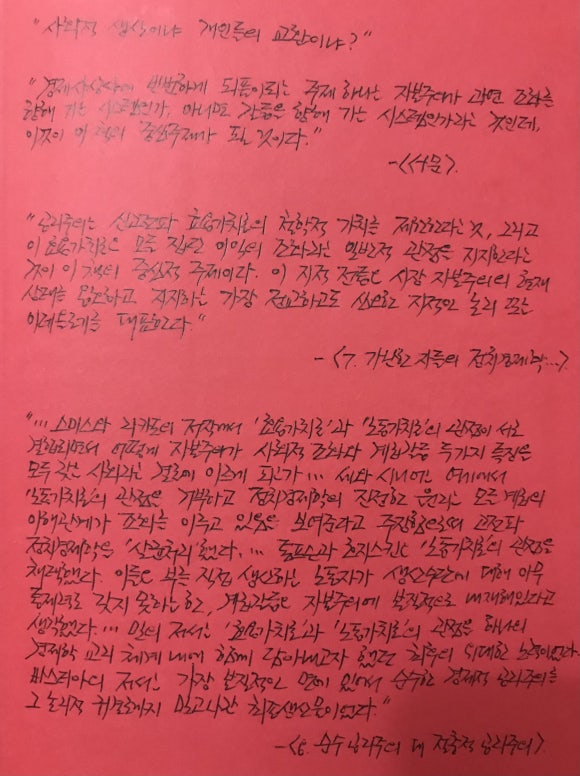 "사회적 생산이냐 개인들의 교환이냐?"
"경제사상사에 빈번하게 되풀이되는 주제 하나는 자본주의가 과연 조화를
향해 가는 시스템인가, 아니면 갈등을 향해 가는 시스템인가라는 것인데,
이것이 이 책의 중심주제가 될 것이다."
-<서문>.
"공리주의는 신고전파 효용가치론의 철학적 가치를 제공한다는 것, 그리고
이 효용가치론은 모든 집단 이익의 조화라는 일반적 관점을 지지한다는
것이 이 책의 중심적 주제이다. 이 지적 전통은 시장 자본주의의 현재
상태를 옹호하고 지지하는 가장 정교하고도 심오한 지적인 논리 또는
이데올로기를 대표한다."
- <7. 가난한 자들의 정치경제학...>
"... 스미스와 리카도의 저작에서 '효용가치론'과 '노동가치론'의 관점이 서로
결합되면서 어떻게 자본주의가 사회적 조화와 계급갈등 두가지 특징을
모두 갖는 사회라는 결론에 이르게 되는가 ... 세와 시니어는
'노동가치론'의 관점을 거부하고 정치경제학의 진정한 원리는 모든 계급의
이해관계가 조화를 이루고 있음을 보여준다고 주장함으로써 고전파
정치경제학을 했다. ... 톰프슨과 호지스킨은 '노동가치론'의 관점을
채택했다. 이들은 부를 직접 생산하는 노동자가 생산수단에 대해 아무
통제력도 갖지 못하는 한, 계급갈등은 자본주의에 본질적으로 내재해있다고
생각했다. ... 밀의 저서는 '효용가치론'과 '노동가치론'의 관점을 하나의
경제학 교리 체계 내에 함께 담아내고자 했던 최후의 위대한 노력이었다.
바스티아의 저서는 가장 본질적인 면에 있어서 순수한 경제적 공리주의를
그 논리적 귀결까지 밀고나간 최종생산물이었다."
-<6. 순수 공리주의 대 절충적 공리주의>.